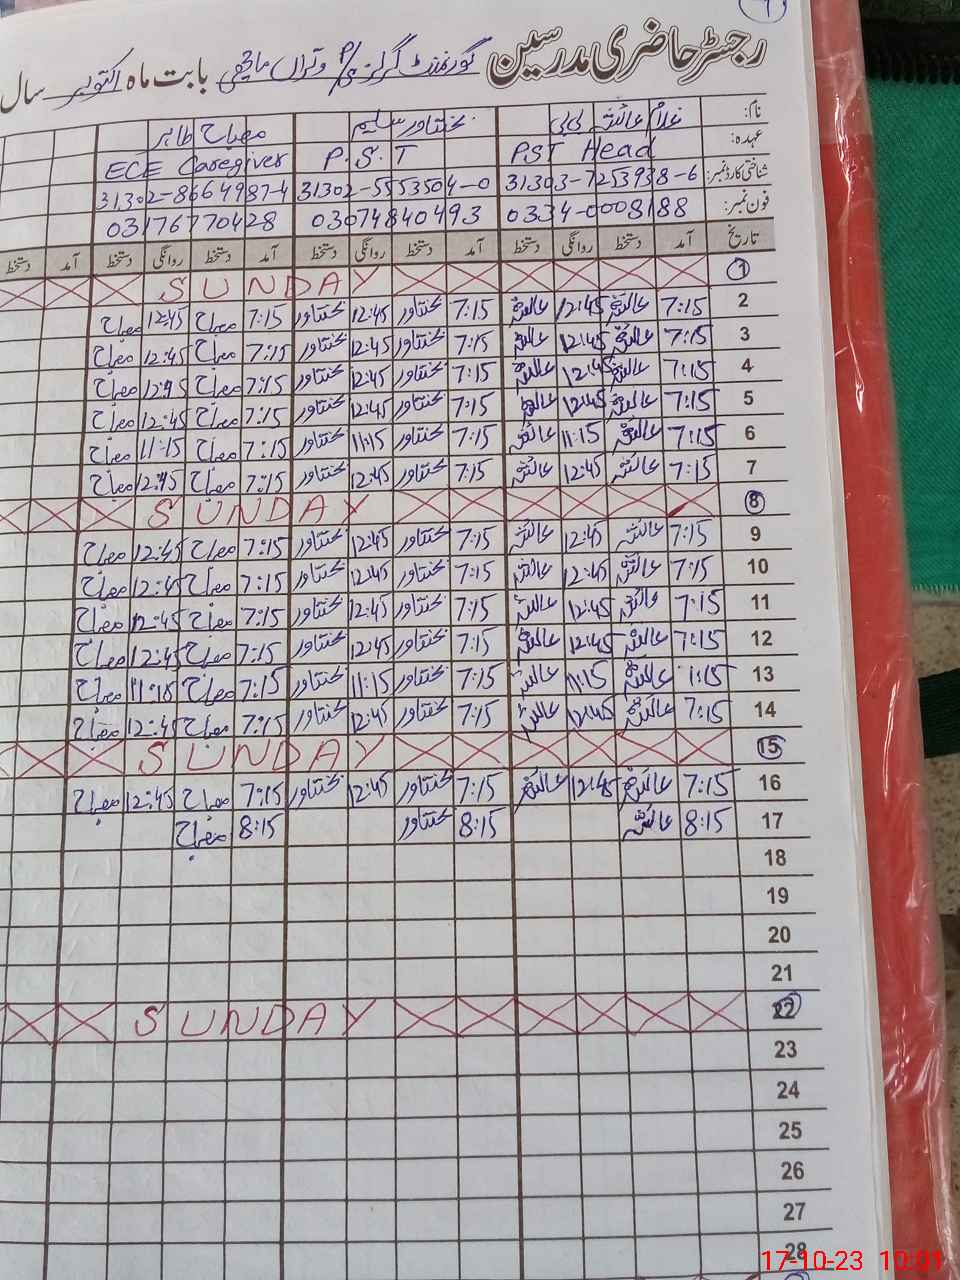 رجسٹر حاضری مدرسین گورنمنٹ گرلز پی/P وتراں ماچھی بابت ماہ اکتوبر سال
نام: غلام عائشہ بی بی بختاور سلیم مصباح طاہر
عہدہ: PST Head P.S.T ECE Caregiver
شناختی کارڈ نمبر: 31303-7253938-6 31302-5553504-0 31302-8664987-4
فون نمبر: 0334-0008188 03074840493 03176770428
تاریخ آمد دستخط روانگی دستخط آمد دستخط روانگی دستخط آمد دستخط روانگی دستخط آمد دستخط
1 SUNDAY
2 7:15 عائشہ 12:45 عائشہ 7:15 بختاور 12:45 بختاور 7:15 مصباح 12:45 مصباح
3 7:15 عائشہ 12:45 عائشہ 7:15 بختاور 12:45 بختاور 7:15 مصباح 12:45 مصباح
4 7:15 عائشہ 12:45 عائشہ 7:15 بختاور 12:45 بختاور 7:15 مصباح 12:45 مصباح
5 7:15 عائشہ 12:45 عائشہ 7:15 بختاور 12:45 بختاور 7:15 مصباح 12:45 مصباح
6 7:15 عائشہ 11:15 عائشہ 7:15 بختاور 11:15 بختاور 7:15 مصباح 11:15 مصباح
7 7:15 عائشہ 12:45 عائشہ 7:15 بختاور 12:45 بختاور 7:15 مصباح 12:45 مصباح
8 SUNDAY
9 7:15 عائشہ 12:45 عائشہ 7:15 بختاور 12:45 بختاور 7:15 مصباح 12:45 مصباح
10 7:15 عائشہ 12:45 عائشہ 7:15 بختاور 12:45 بختاور 7:15 مصباح 12:45 مصباح
11 7:15 عائشہ 12:45 عائشہ 7:15 بختاور 12:45 بختاور 7:15 مصباح 12:45 مصباح
12 7:15 عائشہ 12:45 عائشہ 7:15 بختاور 12:45 بختاور 7:15 مصباح 12:45 مصباح
13 7:15 عائشہ 11:15 عائشہ 7:15 بختاور 11:15 بختاور 7:15 مصباح 11:15 مصباح
14 7:15 عائشہ 12:45 عائشہ 7:15 بختاور 12:45 بختاور 7:15 مصباح 12:45 مصباح
15 SUNDAY
16 7:15 عائشہ 12:45 عائشہ 7:15 بختاور 12:45 بختاور 7:15 مصباح 12:45 مصباح
17 8:15 عائشہ 8:15 بختاور 8:15 مصباح
18
19
20
21
22 SUNDAY
23
24
25
26
27
28
17-10-23 10:01